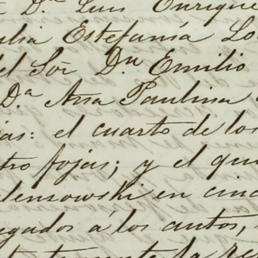 Dn Luis Enrique
Estefanía Lo
el Sor Dn Emilio
Da Ana Paulina
jas: el cuarto de los
tro fojas; y el qui
lensowski en cinc
egados á los autos,